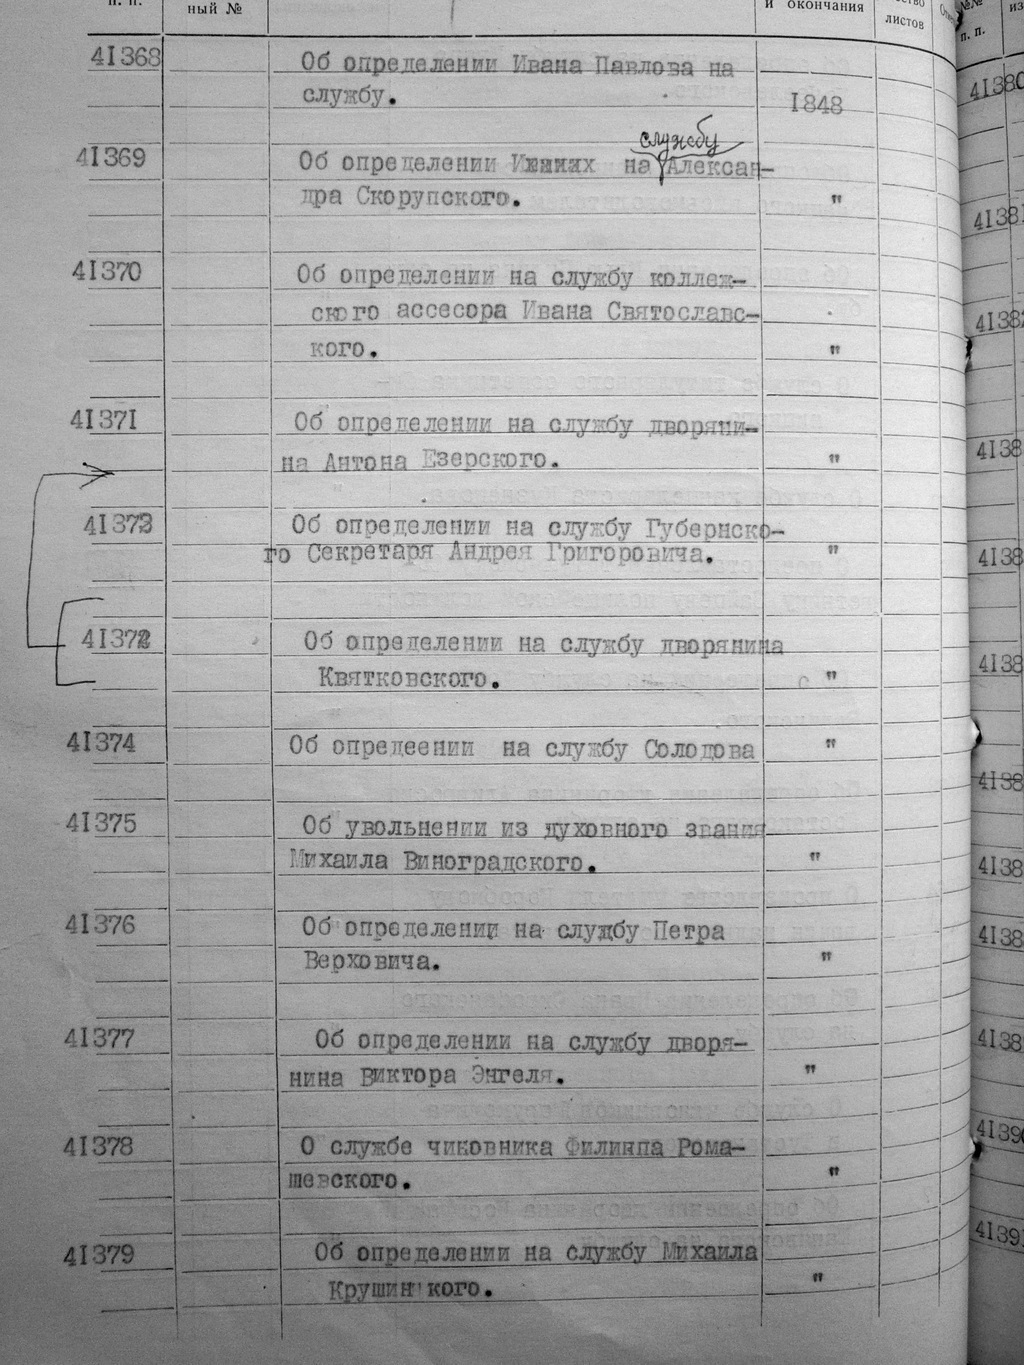 п. п.
ный №
и окончания
листов
№№
п. п.
41368 Об определении Ивана Павлова на
службу. 1848
службу
41369 Об определении на Алексан-
дра Скорупского. "
41370 Об определении на службу коллеж-
ского ассесора Ивана Святославс-
кого. "
41371 Об определении на службу дворяни-
на Антона Езерского. "
41373 Об определении на службу Губернско-
го Секретаря Андрея Григоровича. "
41372 Об определении на службу дворянина
Квятковского. "
41374 Об опредеении на службу Солодова "
41375 Об увольнении из духовного звания
Михаила Виноградского. "
41376 Об определении на службу Петра
Верховича. "
41377 Об определении на службу дворя-
нина Виктора Энгеля. "
41378 О службе чиковника Филиппа Рома-
шевского. "
41379 Об определении на службу Михаила
Крушин кого. "
41380
4138
4138
4138
4138
4138
4138
4138
4138
4138
4139
4139